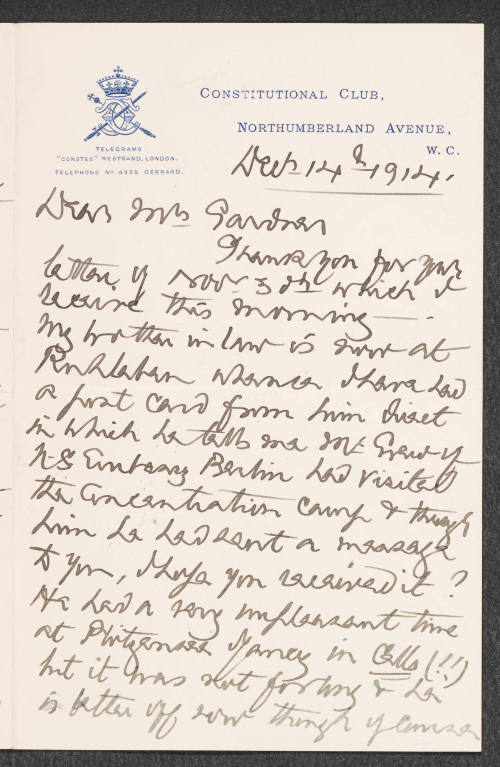 CONSTITUTIONAL CLUB,
NORTHUMBERLAND AVENUE,
W. C.
TELEGRAMS
"CONSTES" WESTRAND, LONDON.
TELEPHONE No 4335 GERRARD.
Dec 14th 1914.
Dear Mrs Gardner
Thank you for your
letter of Nov 30th which I
receive this morning —.
My brother in law is now at
Ruhleben whence I have had
a post card from him direct
in which he tells me Mr Grew of
U.S Embassy Berlin had visited
the Concentration Camp & through
him he had sent a message
to you, I hope you received it?
He had a very unpleasant time
at Plötzensee. Fancy in Cells (!!)
but it was not for long & he
is better off now though of course